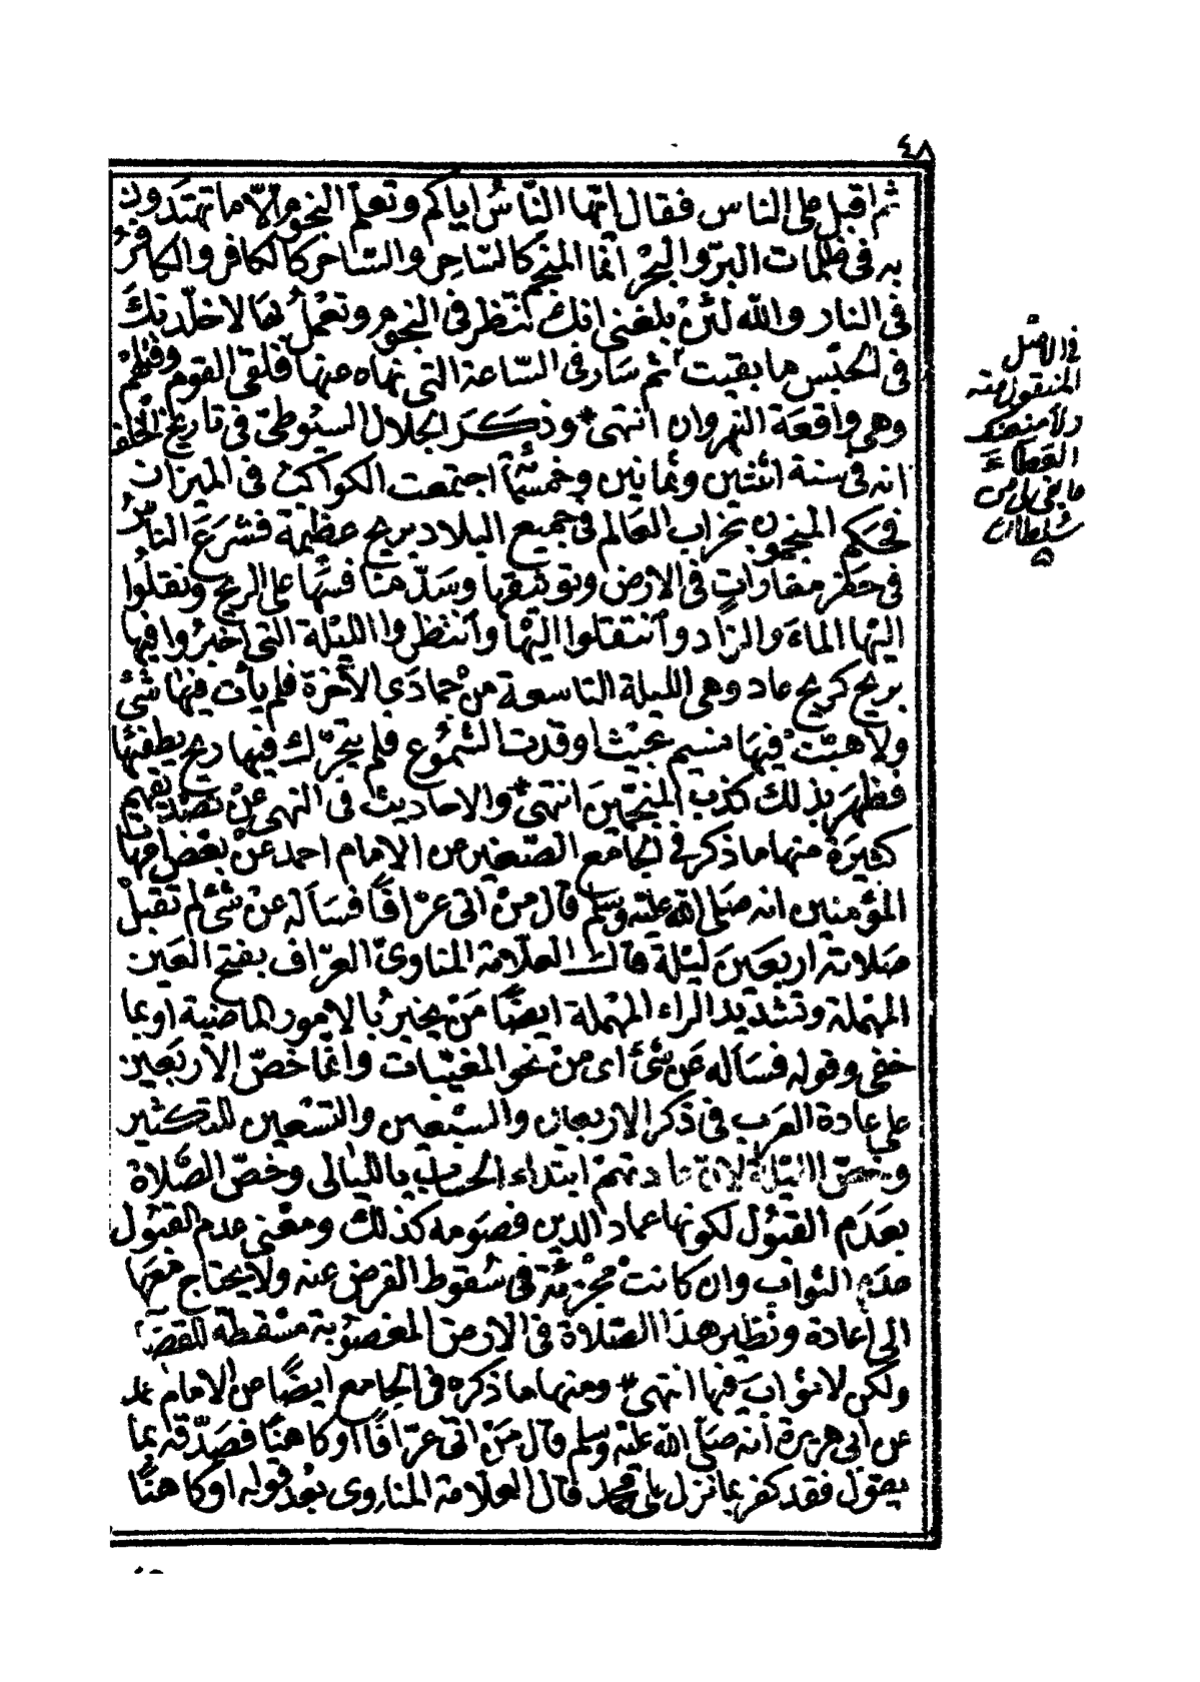 ٤٨
ثم اقبل على الناس فقال ايّها النّاسُ اياكم وتعلّم النجوم الّا ما تهتدون
به في ظلمات البرّ والبحر انما المنجّم كالسّاحِر والسّاحر كالكافر والكافرُ
في النار والله لئنْ بلغني انك تنظر في النجوم وتعْملُ بها لاخلّدنكَ
في الحبْس ما بقيت ثم سَار في السّاعة التي نهاه عنها فلقي القوم وقتلهم
وهي واقعَة النهروان انتهى وذكَرَ الجلال السيُوطيّ في تاريخ الخلفا
انه في سنة اثنتين وثمانين وخمسمُّائة اجتمعت الكواكبُ في الميزان
فحكم المنجمون بخراب العالم في جميع البلاد بريح عظيمة فشرَعَ الناسُ
في حَفْر مغارات في الارض وتوثيقها وسَدّ منافسَها على الريح ونقلُوا
اليْها الماءَ والزّاد وانتقلوا اليْها وانتظروا الليْلة التي اخبرُوا فيها
بريح كريح عاد وهي الليلة التاسعة منْ جمادَى الآخرة فلم يأت فيها شئٌ
ولا هبّتْ فيهَا نسيم بحَيْث اوقدت الشمُوع فلم يتحرّك فيها ريح يطفئها
فظهرَ بذلك كذب المنجّمينَ انتهى والاحاديث في النهى عنْ تصْديقهم
كثيرَة منها ما ذكر في الجامع الصّغير من الامام احمد عنْ بعْض امّهات
المؤمنين انه صَلى الله عليْه وسلم قال منْ اتى عرّافًا فسَأله عنْ شئ لم تقبلْ
صَلاته اربعينَ ليْلة قال العلّامة المناويّ العرّاف بفتح العَين
المهْملة وتشديد الراء المهْملة ايضًا مَنْ يخبرُ بالامُور الماضية او بما
خفى وقوله فسَاله عَن شئ اى منْ نحو المغيّبات وانما خصّ الاربَعين
على عادة العرَب في ذكر الاربعين والسبْعين والتسْعين للتكثير
وخصّ الليْلة لانّ عادتهمْ ابتداء الحسَاب بالليَالي وخصّ الصّلاة
بعَدَم القبُول لكونها عمادَ الدين فصَومه كذلك ومعْنى عدم القبُول
عدَم الثواب وان كانتْ مُجْزئة في سُقوط الفرض عنه ولا يحتاج معَها
الى اعادة ونظير هذا الصّلاة في الارض المغصوبة مسْقطة للقضَا
ولكن لا ثوَابَ فيها انتهى ومنها ما ذكره في الجامع ايضًا عن الامام
عن ابى هريرة انه صَلى الله عليْه وسلم قال مَنْ اتى عرّافًا او كاهنًا فصَدّقه بما
يقول فقد كفر بما انزل على محمد قال العلّامة المناوى بعْد قوله او كاهنًا
في الاصْل
المنقول منه
ولا منعنك
العطاء
ما بقى لى من
سُلطان